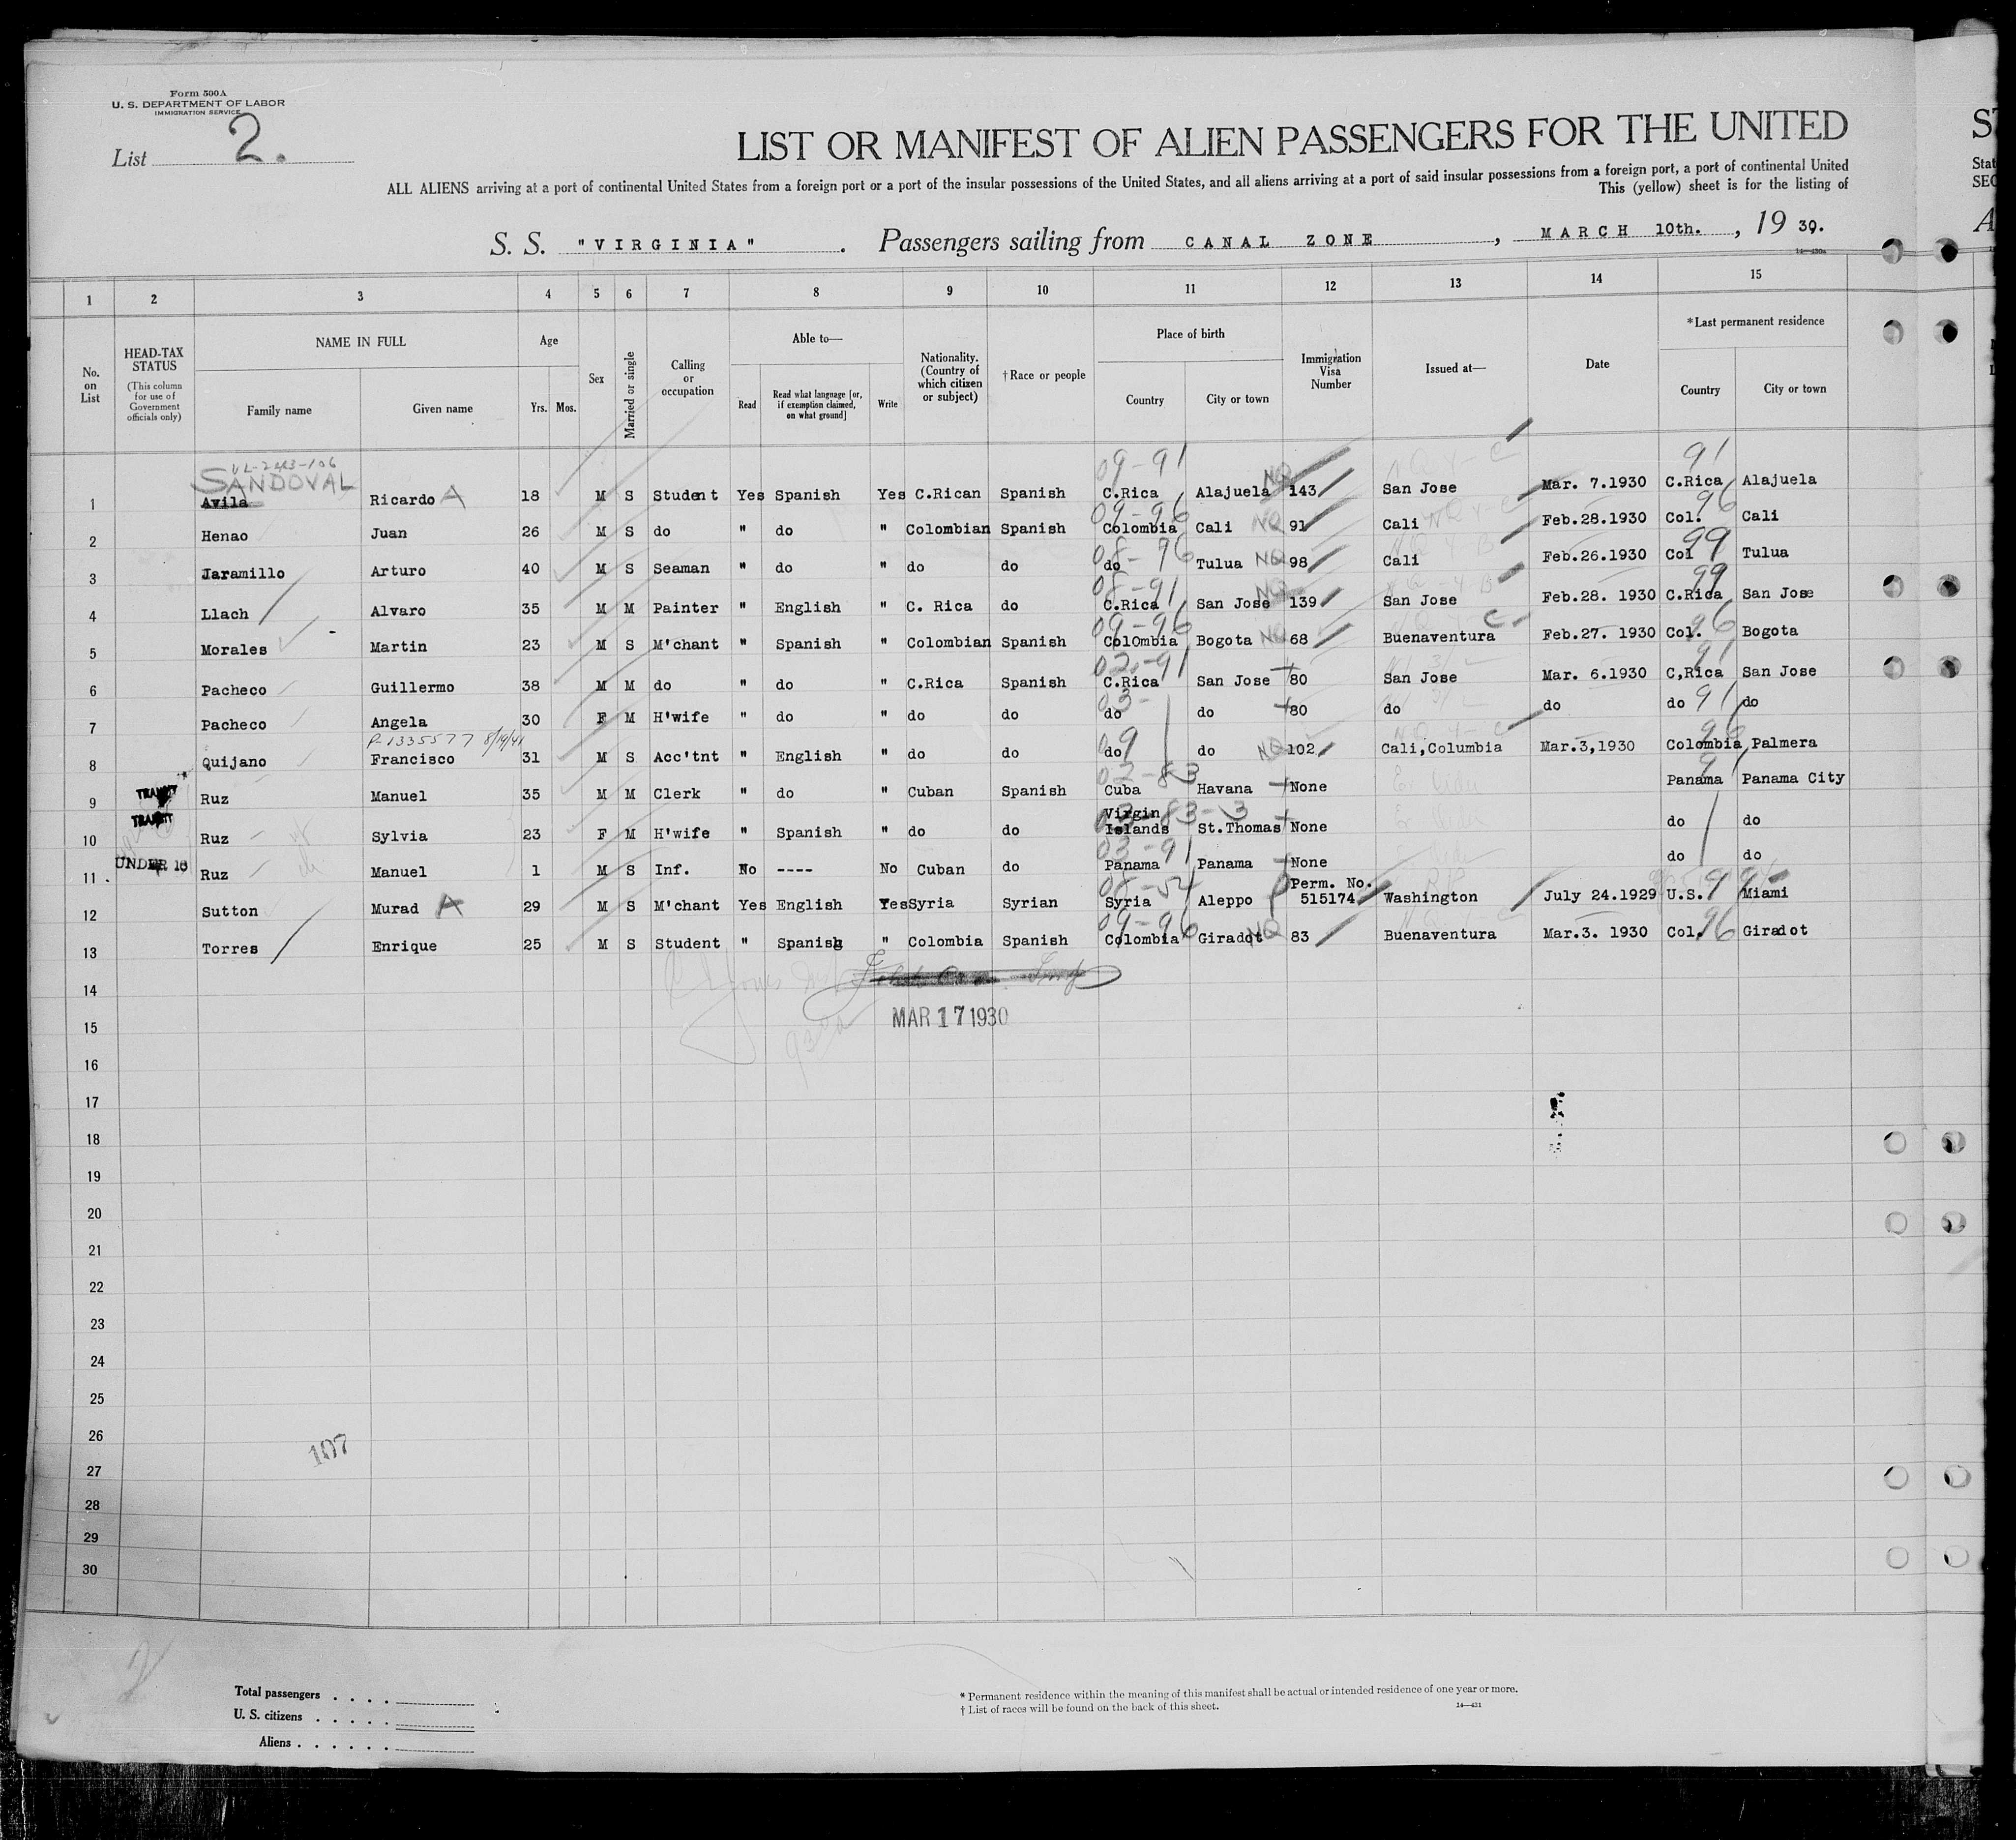 Form 500A
U. S. DEPARTMENT OF LABOR
IMMIGRATION SERVICE
List 2.
LIST OR MANIFEST OF ALIEN PASSENGERS FOR THE UNITED
ST
ALL ALIENS arriving at a port of continental United States from a foreign port or a port of the insular possessions of the United States, and all aliens arriving at a port of said insular possessions from a foreign port, a port of continental United
Stat
This (yellow) sheet is for the listing of
SEC
S. S. "VIRGINIA" . Passengers sailing from CANAL ZONE , MARCH 10th. , 19 30.
A
1 2 3 4 5 6 7 8 9 10 11 12 13 14 15
No. on List
HEAD-TAX STATUS (This column for use of Government officials only)
NAME IN FULL Family name Given name
Age Yrs. Mos.
Sex
Married or single
Calling or occupation
Able to— Read Read what language [or, if exemption claimed, on what ground] Write
Nationality. (Country of which citizen or subject)
†Race or people
Place of birth Country City or town
Immigration Visa Number
Issued at—
Date
*Last permanent residence Country City or town
VL-243-106 09-91 91
SANDOVAL NQ
1 Avila Ricardo A 18 M S Student Yes Spanish Yes C.Rican Spanish C.Rica Alajuela 143 San Jose Mar. 7.1930 C.Rica Alajuela
09-96 96
2 Henao Juan 26 M S do " do " Colombian Spanish Colombia Cali NQ 91 Cali Feb.28.1930 Col. Cali
08-96 99
3 Jaramillo Arturo 40 M S Seaman " do " do do do Tulua NQ 98 Cali Feb.26.1930 Col Tulua
08-91 99
4 Llach Alvaro 35 M M Painter " English " C. Rica do C.Rica San Jose NQ 139 San Jose Feb.28. 1930 C.Rica San Jose
09-96 96
5 Morales Martin 23 M S M'chant " Spanish " Colombian Spanish ColOmbia Bogota NQ 68 Buenaventura Feb.27. 1930 Col. Bogota
02-91 91
6 Pacheco Guillermo 38 M M do " do " C.Rica Spanish C.Rica San Jose 80 San Jose Mar. 6.1930 C,Rica San Jose
03-
7 Pacheco Angela 30 F M H'wife " do " do do do do 80 do do do 91 do
P-1335577 8/19/41 09 96
8 Quijano Francisco 31 M S Acc'tnt " English " do do do do NQ 102 Cali,Columbia Mar.3,1930 Colombia Palmera
02-83 91
9 TRANSIT Ruz Manuel 35 M M Clerk " do " Cuban Spanish Cuba Havana None Panama Panama City
03-83-3
10 TRANSIT Ruz Sylvia 23 F M H'wife " Spanish " do do Virgin Islands St.Thomas None do do
03-91
11 UNDER 16 Ruz Manuel 1 M S Inf. No ---- No Cuban do Panama Panama None do do
08-54 91
12 Sutton Murad A 29 M S M'chant Yes English Yes Syria Syrian Syria Aleppo Perm. No. 515174 Washington July 24.1929 U.S. Miami
09-96 96
13 Torres Enrique 25 M S Student " Spanish " Colombia Spanish Colombia Giradot NQ 83 Buenaventura Mar.3. 1930 Col. Giradot
14
15 MAR 17 1930
16
17
18
19
20
21
22
23
24
25
26
107
27
28
29
30
2
Total passengers . . . .
U. S. citizens . . . . .
Aliens . . . . . .
* Permanent residence within the meaning of this manifest shall be actual or intended residence of one year or more.
† List of races will be found on the back of this sheet.
14—431